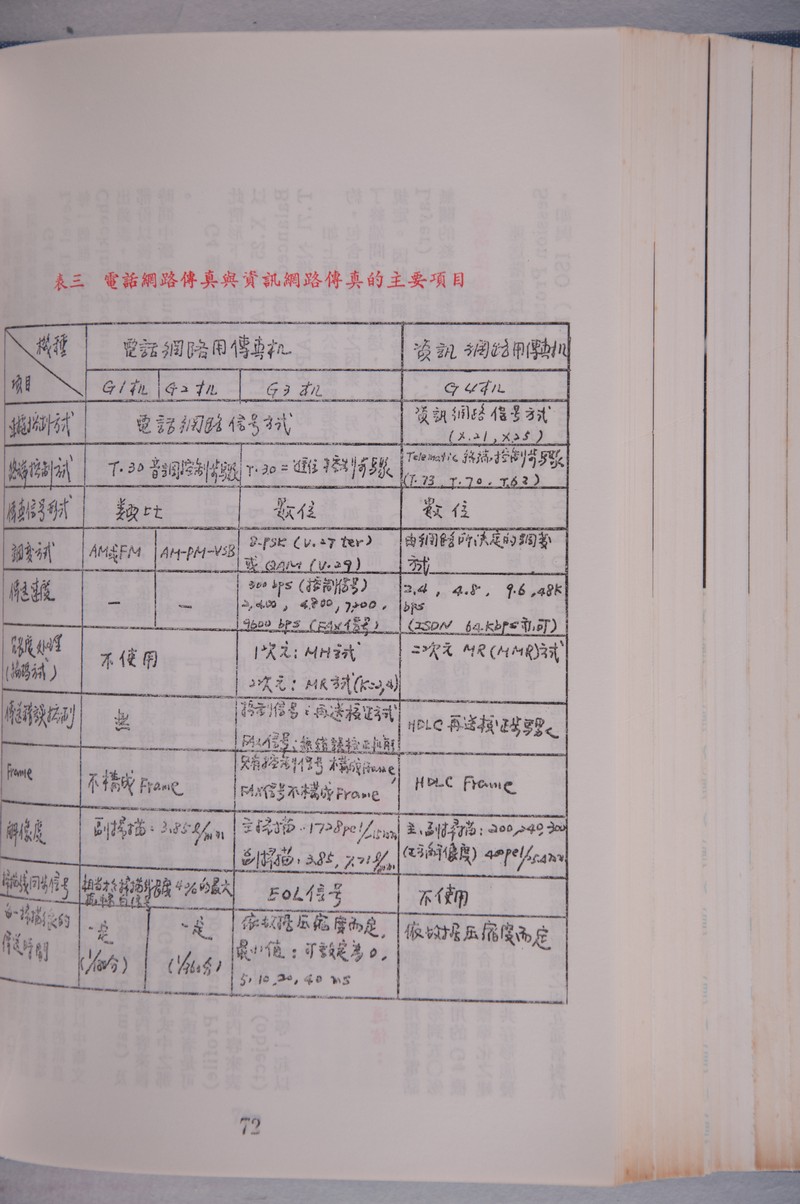 表三 電話網路傳真與資訊網路傳真的主要項目
機種
項目
電話網路用傳真机
資訊網路用傳真机
G1机 G2机 G3机 G4机
電話網路信号方式
資訊網路信号方式
(X.21, X.25)
終端控制方式
T.30音調控制步驟
T.30=進位控制步驟
Telematic 終端控制步驟
(T.73, T.70, T.62)
傳真信号形式
類比
數位
數位
調變方式
AM或FM
AM-PM-VSB
8-PSK (V.27 ter)
或 QAM (V.29)
由網路所決定的調變
方式
傳送速度
—
—
300 bps (控制信号)
2,400, 4,800, 7,200,
9600 bps (FAX信号)
2.4, 4.8, 9.6, 48K
bps
(ISDN 64Kbps亦可)
(編碼方式)
不使用
1次元: MH方式
2次元: MR方式(K=2,4)
二次元 MR(MMR)方式
傳送錯誤控制
無
控制信号:再送校正方式
FAX信号:無錯誤校正
HDLC再送校正步驟
Frame
不構成Frame
只有控制信号構成Frame,
FAX信号不構成Frame
HDLC Frame
解像度
副掃描: 3.85ℓ/mm
主掃描: 1728pel/215mm
副掃描: 3.85, 7.7ℓ/mm
主、副掃描: 200, 240, 300
400pel/25.4mm
掃描線同步信号
4%的最大
EOL信号
不使用
每一掃描線的
傳送時間
一定
(1/180分)
一定
(1/360分)
依數據壓縮度而定,
最小值: 可設定為0,
5, 10, 20, 40 ms
依數據壓縮度而定
72